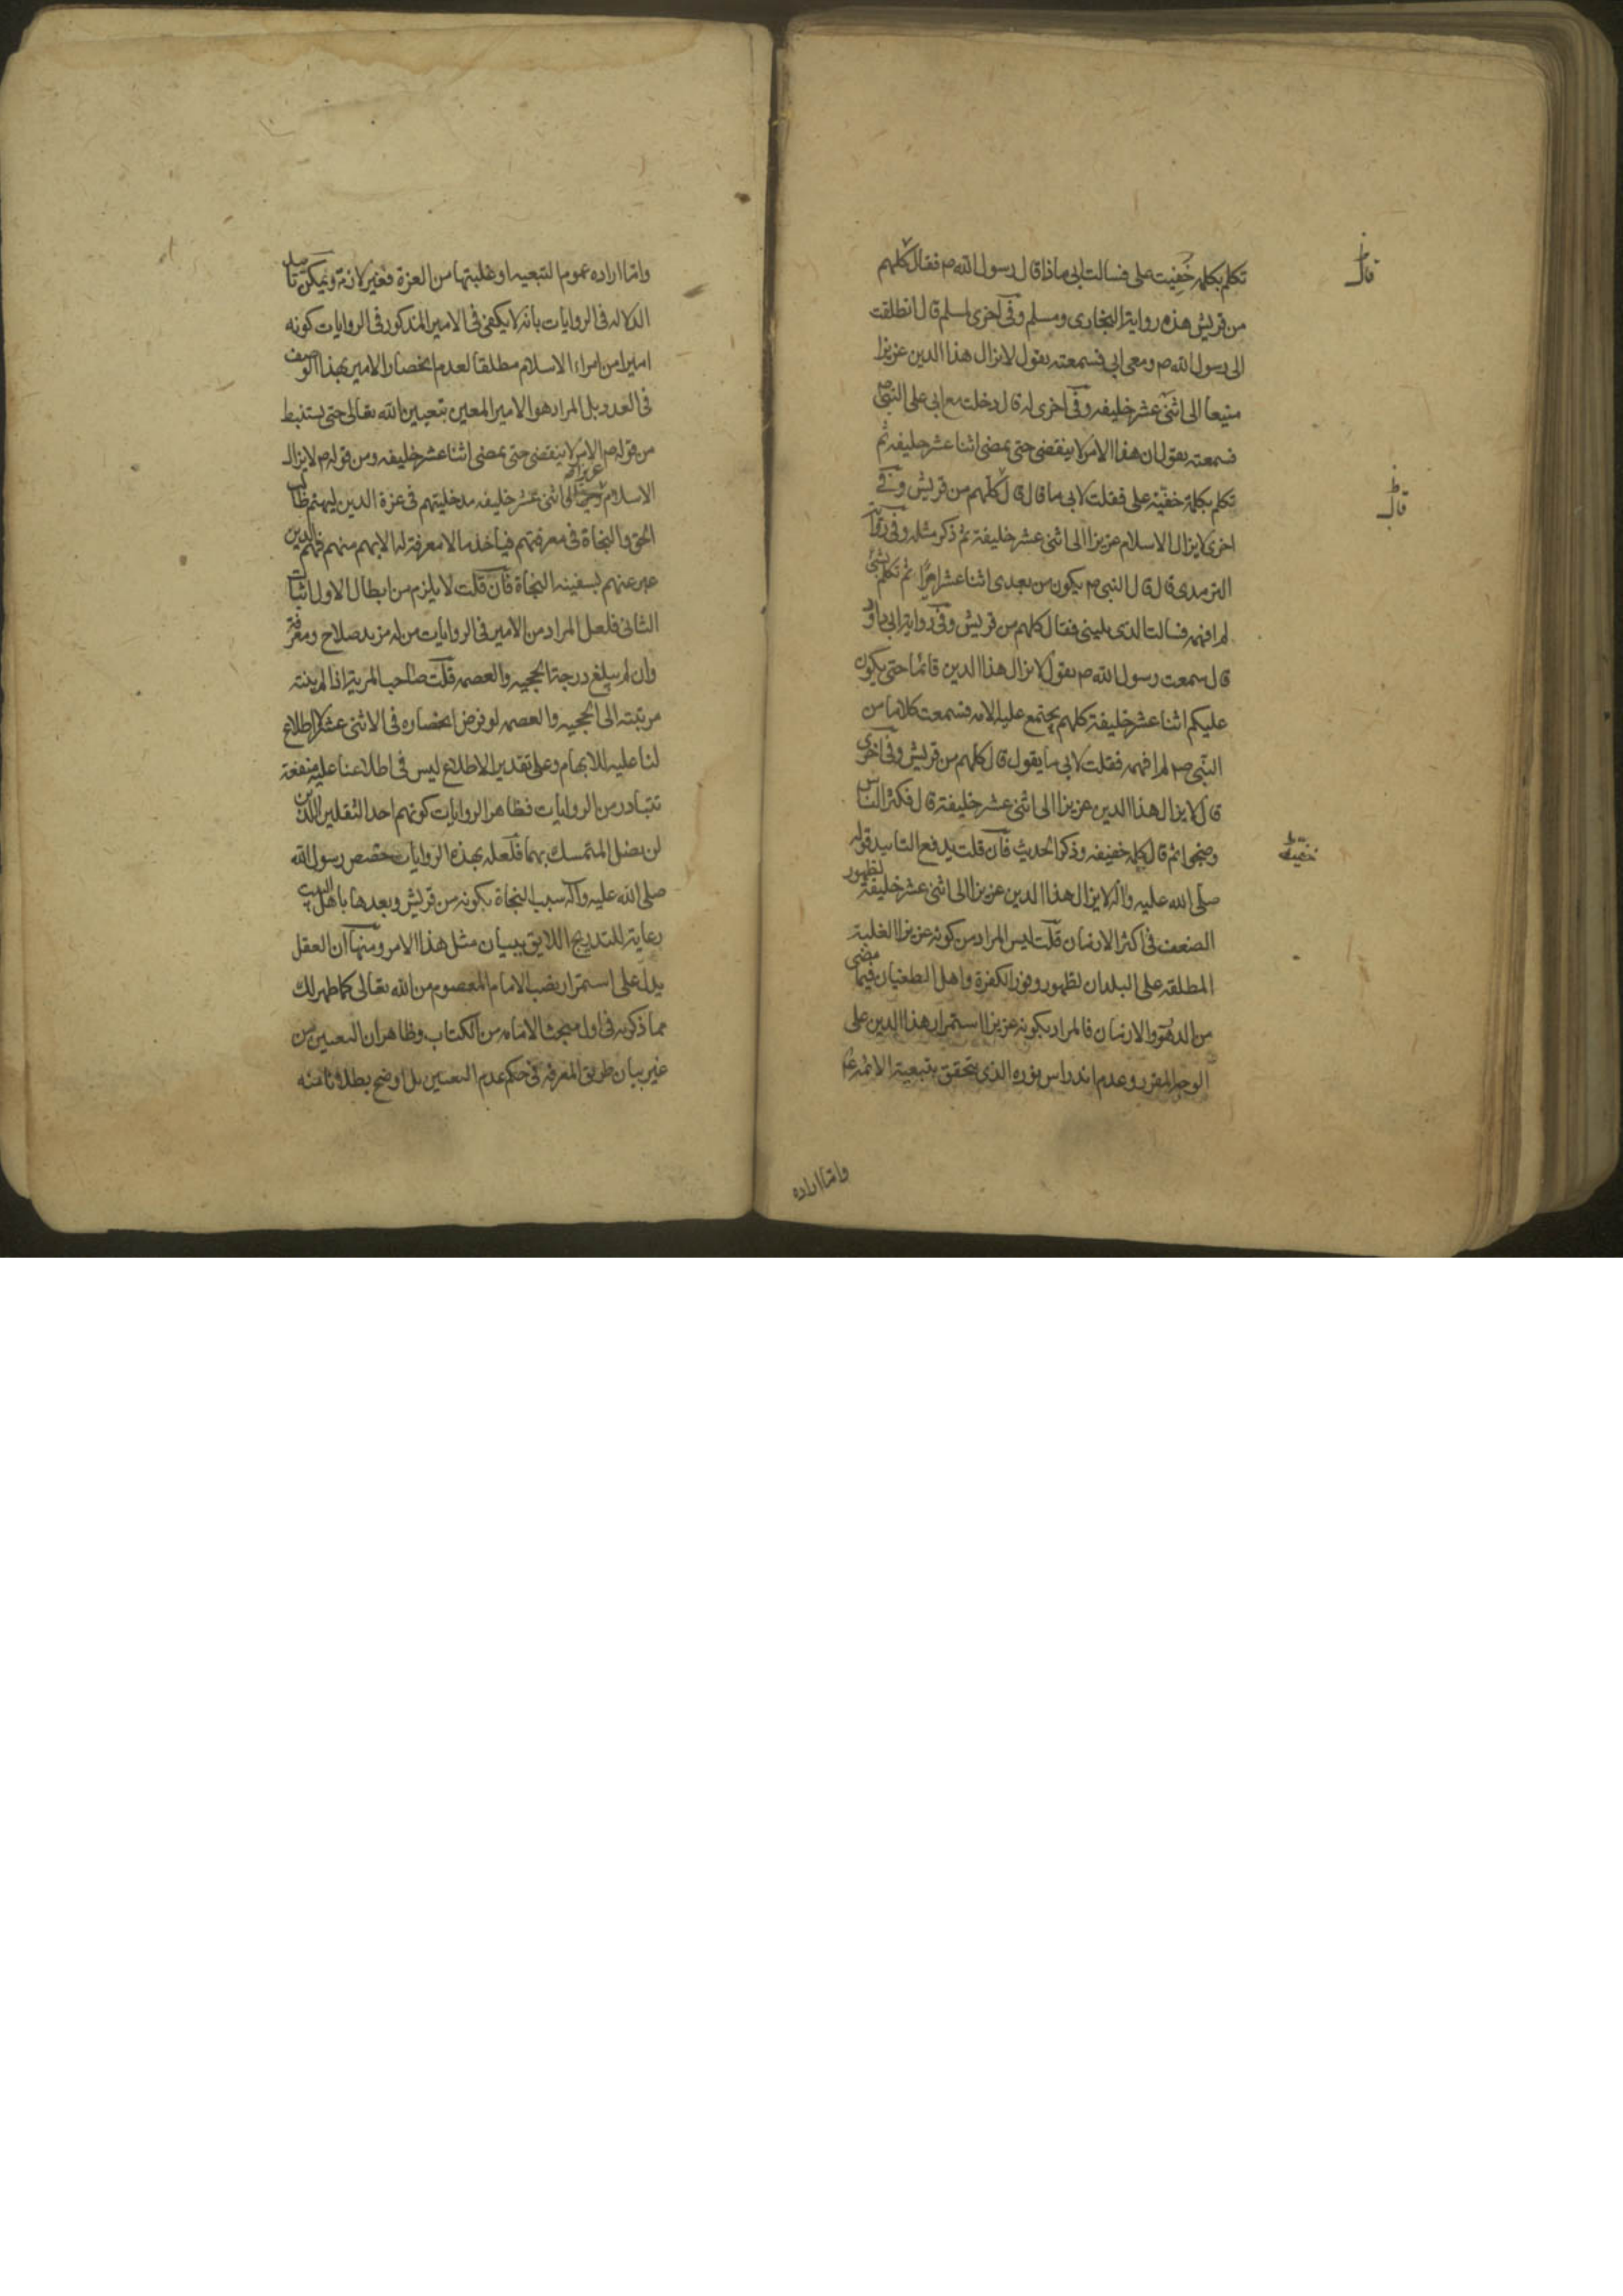 تكلم بكلمة خفيت على فسالت ابى ماذا قال رسول الله ص فقال كلهم
من قريش هذه رواية البخارى ومسلم وفى اخرى لمسلم قال انطلقت
الى رسول الله ص ومعى ابى فسمعته يقول لا يزال هذا الدين عزيزا
منيعا الى اثنى عشر خليفه وفى اخرى له قال دخلت مع ابى على النبى ص
فسمعته يقول ان هذا الامر لا ينقضى حتى يمضى اثنا عشر خليفه ثم
تكلم بكلمة خفية على فقلت لابى ما قال قال كلهم من قريش وفى
اخرى لا يزال الاسلام عزيزا الى اثنى عشر خليفة ثم ذكر مثله وفى رواية
الترمدى قال قال النبى ص يكون من بعدى اثنا عشر اميرا ثم تكلم بشئ
لم افهمه فسالت الذى يلينى فقال كلهم من قريش وفى رواية ابى داود
قال سمعت رسول الله ص يقول لا يزال هذا الدين قائما حتى يكون
عليكم اثنا عشر خليفة كلهم يجتمع عليه الامه فسمعت كلاما من
النبى ص لم افهمه فقلت لابى ما يقول قال كلهم من قريش وفى اخرى
قال لا يزال هذا الدين عزيزا الى اثنى عشر خليفة قال فكثر الناس
وضجوا ثم قال كلمه خفيفه وذكر الحديث فان قلت يدفع التاييد قوله
صلى الله عليه واله لا يزال هذا الدين عزيزا الى اثنى عشر خليفة لظهور
الضعف فى اكثر الازمان قلت ليس المراد من كونه عزيزا الغلبة
المطلقه على البلدان لظهور وفور الكفرة واهل الطغيان فيما مضى
من الدهور والازمان فالمراد بكونه عزيزا استمرار هذا الدين على
الوجه المقرر وعدم اندراس نوره الذى يتحقق بتبعية الائمه ع
واما اراده
قال ظ
قال ظ
خفيفه ظ
واما اراده عموم التبعيه او غلبتها من العزة فغير لازمة ويمكن تاييد
الدلاله فى الروايات بانه لا يكفى فى الامير المذكور فى الروايات كونه
اميرا من امراء الاسلام مطلقا لعدم انحصار الامير بهذا الوصف
فى العدد بل المراد هو الامير المعين بتعيين الله تعالى حتى يستنبط
من قوله ص الامر لا ينقضى حتى يمضى اثنا عشر خليفه ومن قوله ص لا يزال
الاسلام عزيزا الى اثنى عشر خليفه مدخليتهم فى عزة الدين ليهتم طالب
الحق والنجاة فى معرفتهم فياخذ ما لا معرفة له الا بهم منهم فهم الذين
عبر عنهم بسفينه النجاة فان قلت لا يلزم من ابطال الاول اثبات
الثانى فلعل المراد من الامير فى الروايات من له مزيد صلاح ومعرفة
وان لم يبلغ درجة الحجيه والعصمه قلت صاحب المزية اذا لم ينته
مرتبته الى الحجيه والعصمه لو فرض انحصاره فى الاثنى عشر لا اطلاع
لنا عليه للابهام وعلى تقدير الاطلاع ليس فى اطلاعنا عليه منفعة
تتبادر من الروايات فظاهر الروايات كونهم احد الثقلين اللذين
لن يضل المتمسك بهما فلعله بهذه الروايات خصص رسول الله
صلى الله عليه وآله سبب النجاة بكونه من قريش وبعدها باهل البيت
رعاية للتدريج اللايق ببيان مثل هذا الامر ومنها ان العقل
يدل على استمرار نصب الامام المعصوم من الله تعالى كما ظهر لك
مما ذكرته فى اول مبحث الامامه من الكتاب وظاهر ان التعيين من
غير بيان طريق المعرفه فى حكم عدم التعيين بل اوضح بطلانا منه